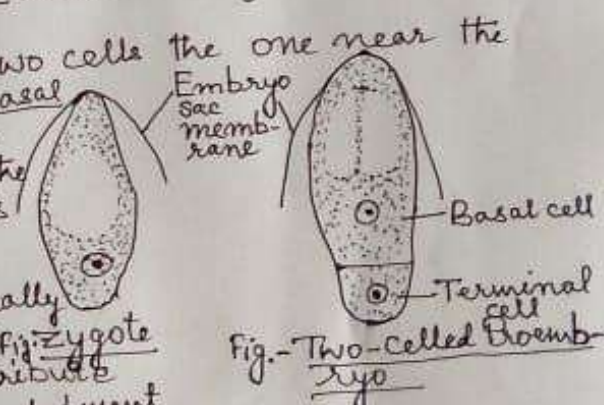 two cells the one near the
basal
Embryo
sac
memb-
rane
the
Basal cell
ally
Terminal
cell
Fig: Zygote
Fig.- Two-celled Proemb-
ryo